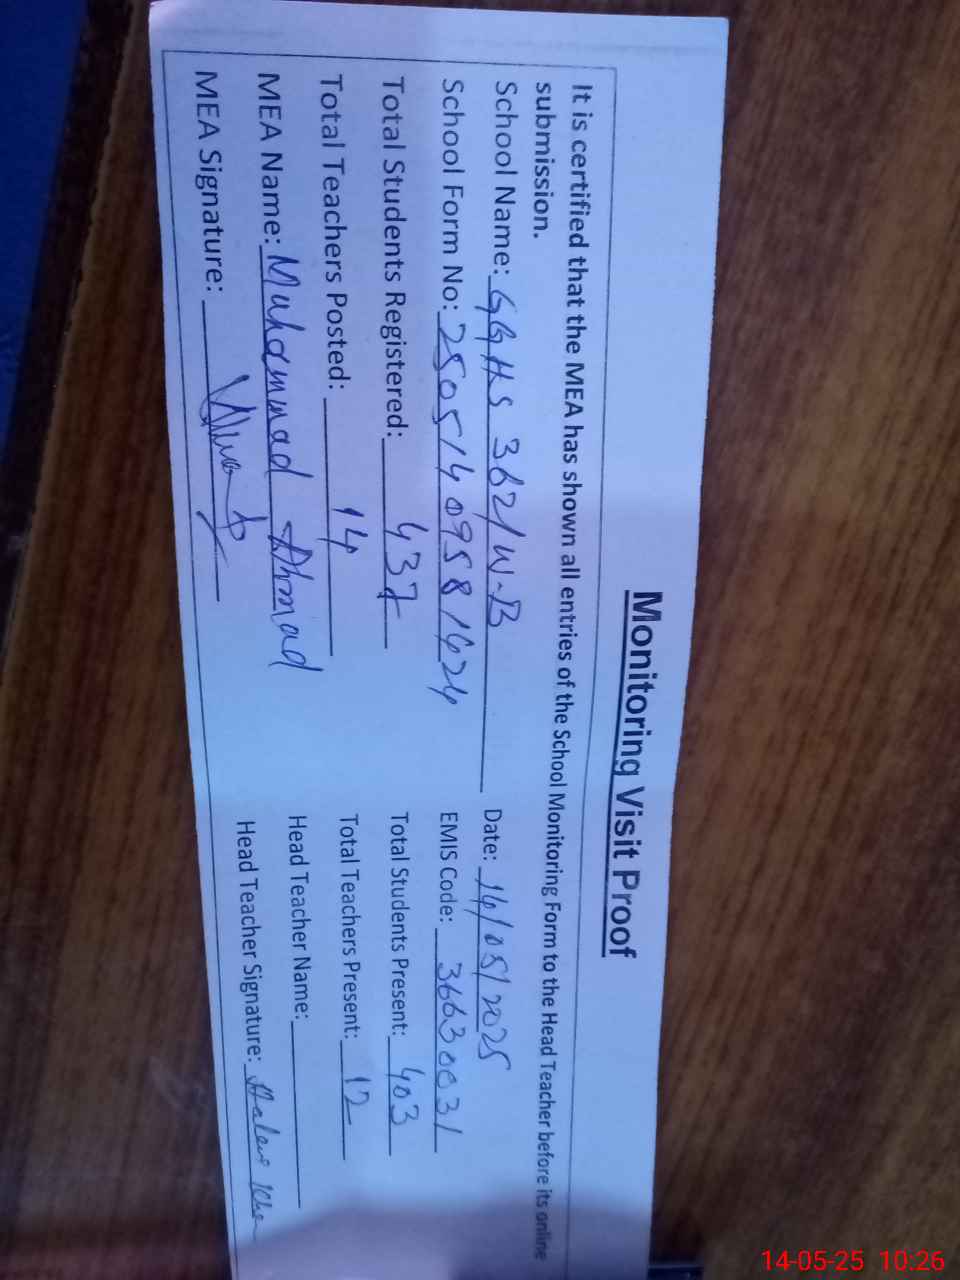 Monitoring Visit Proof
It is certified that the MEA has shown all entries of the School Monitoring Form to the Head Teacher before its online
submission.
School Name: GGHS 362/W-B
Date: 14/05/2025
School Form No: 25051409581424
EMIS Code: 36630031
Total Students Registered: 437
Total Students Present: 403
Total Teachers Posted: 14
Total Teachers Present: 12
MEA Name: Muhammad Ahmad
Head Teacher Name:
MEA Signature:
Head Teacher Signature:
14-05-25 10:26